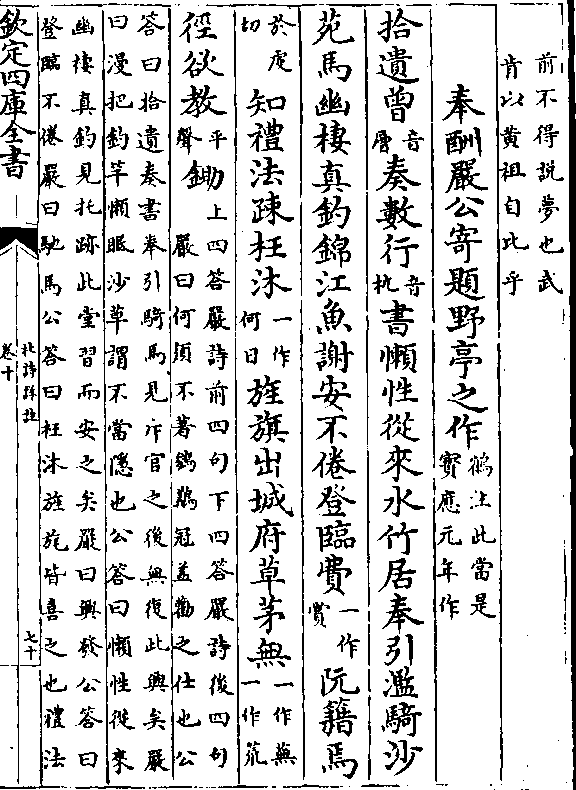 前不得說夢也武
肯以黃祖自比乎
奉酬嚴公寄題野亭之作 鶴注此當是
寶應元年作
拾遺曾 音層 奏數行 音杭 書懶性從來水竹居奉引濫騎沙
苑馬幽棲真釣錦江魚謝安不倦登臨費 一作賞 阮籍焉
於虔切 知禮法疎枉沐 一作何日 旌旗出城府草茅無 一作蕪一作荒
徑欲教 平聲 鋤 上四答嚴詩前四句下四答嚴詩後四句
嚴曰何須不著鵕鸃冠蓋勸之仕也公
答曰拾遺奏書奉引騎馬見作官之後無復此興矣嚴
曰漫把釣竿懶眠沙草謂不當隱也公答曰懶性從來
幽棲真釣見托跡此堂習而安之矣嚴曰興發公答曰
登臨不倦嚴曰馳馬公答曰枉沐旌旄皆喜之也禮法
欽定四庫全書
杜詩詳註
卷十
七十